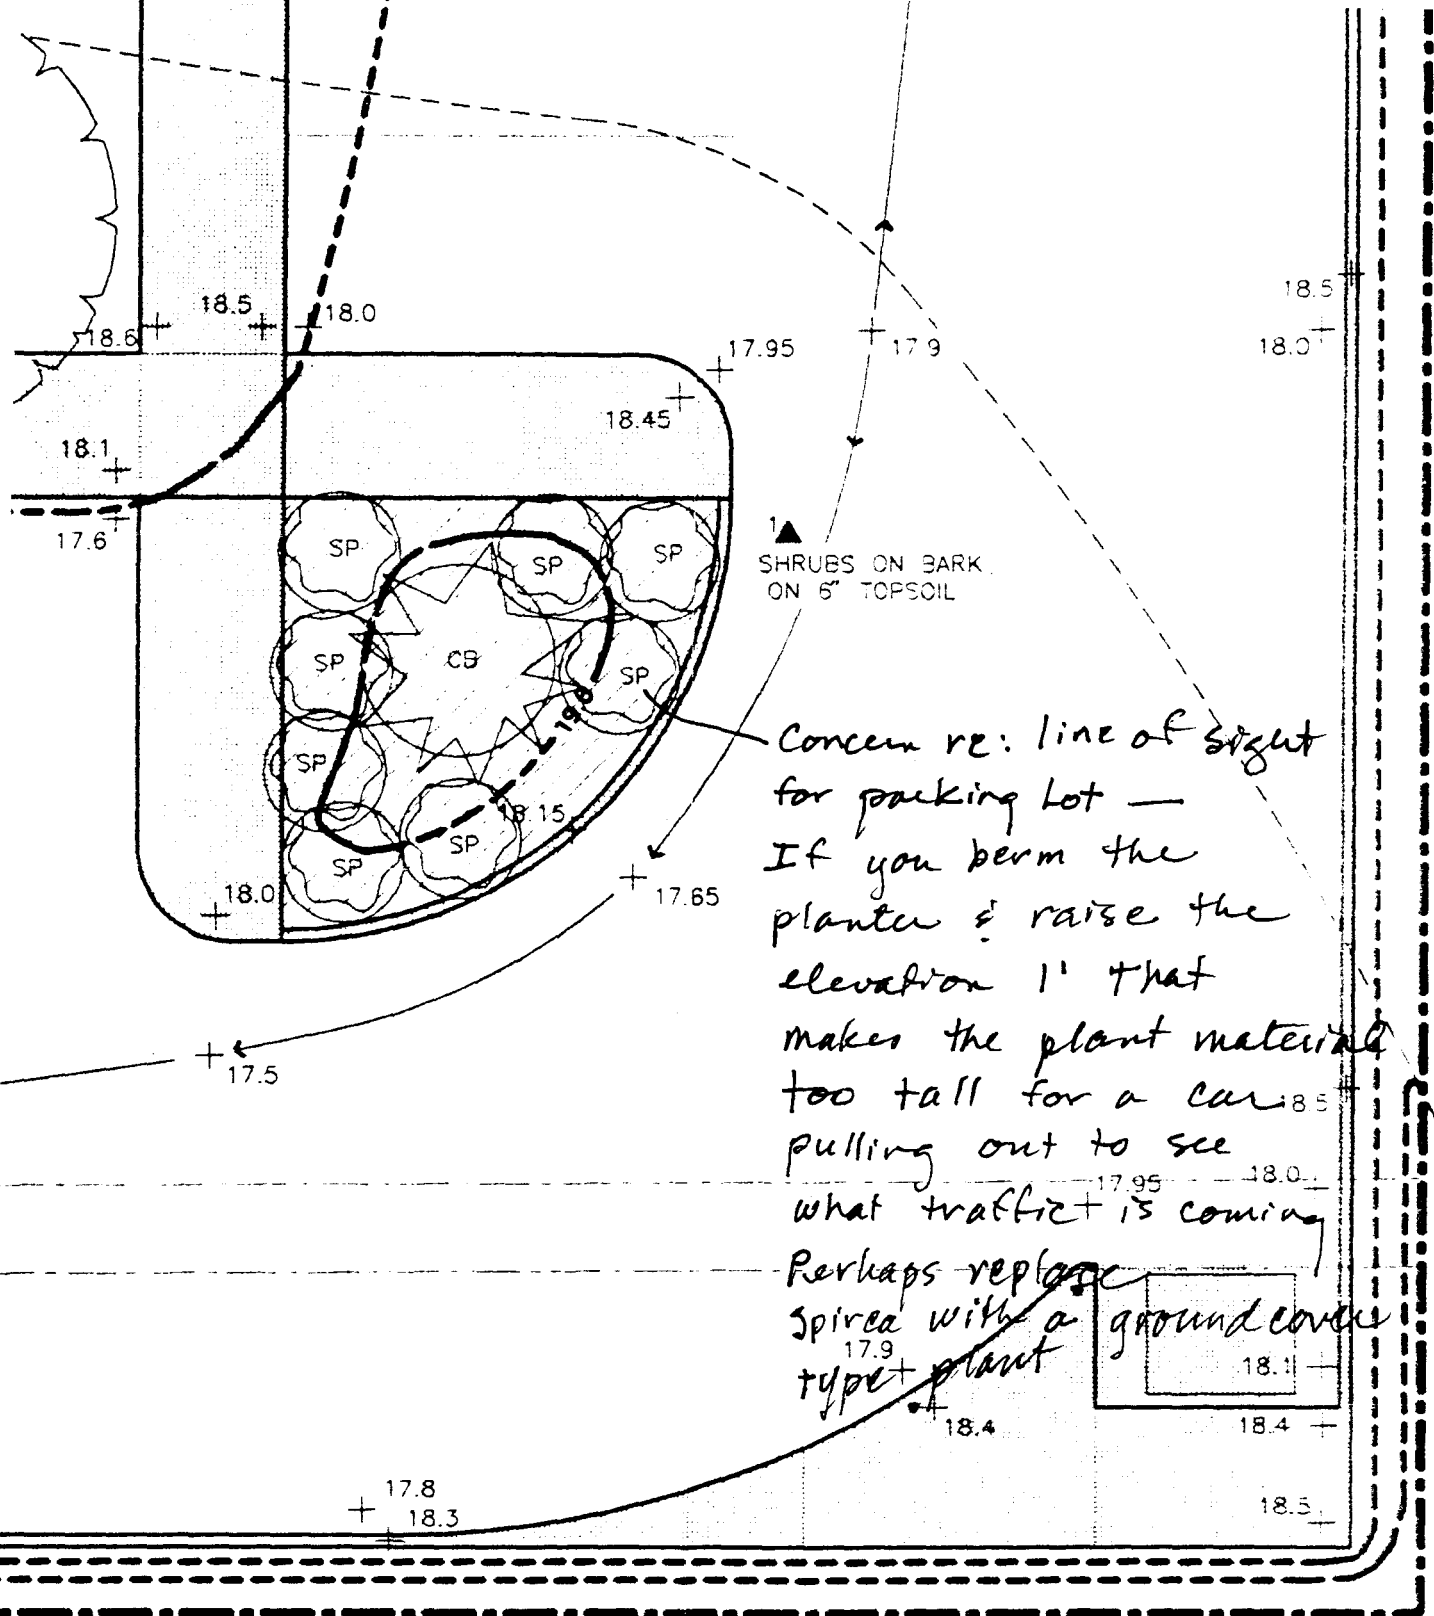 18.5
18.0
18.6
18.5
18.0
17.95
17.9
18.45
18.1
17.6
SP
SP
SP
1
SHRUBS ON BARK
ON 6" TOPSOIL
SP
CB
SP
19.0
SP
18.15
SP
SP
18.0
17.65
17.5
Concern re: line of sight
for parking lot —
If you berm the
planter & raise the
elevation 1' that
makes the plant material
too tall for a car
18.5
pulling out to see
17.95
18.0
what traffic is coming
Perhaps replace
spirea with a groundcover
17.9
type plant
18.1
18.4
18.4
17.8
18.3
18.5